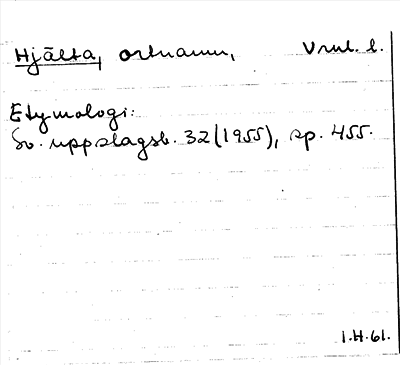 Hjälta, ortnamn, Vrml. l.
Etymologi:
Sv. uppslagsb. 32 (1955), sp. 455.
I.H.61.